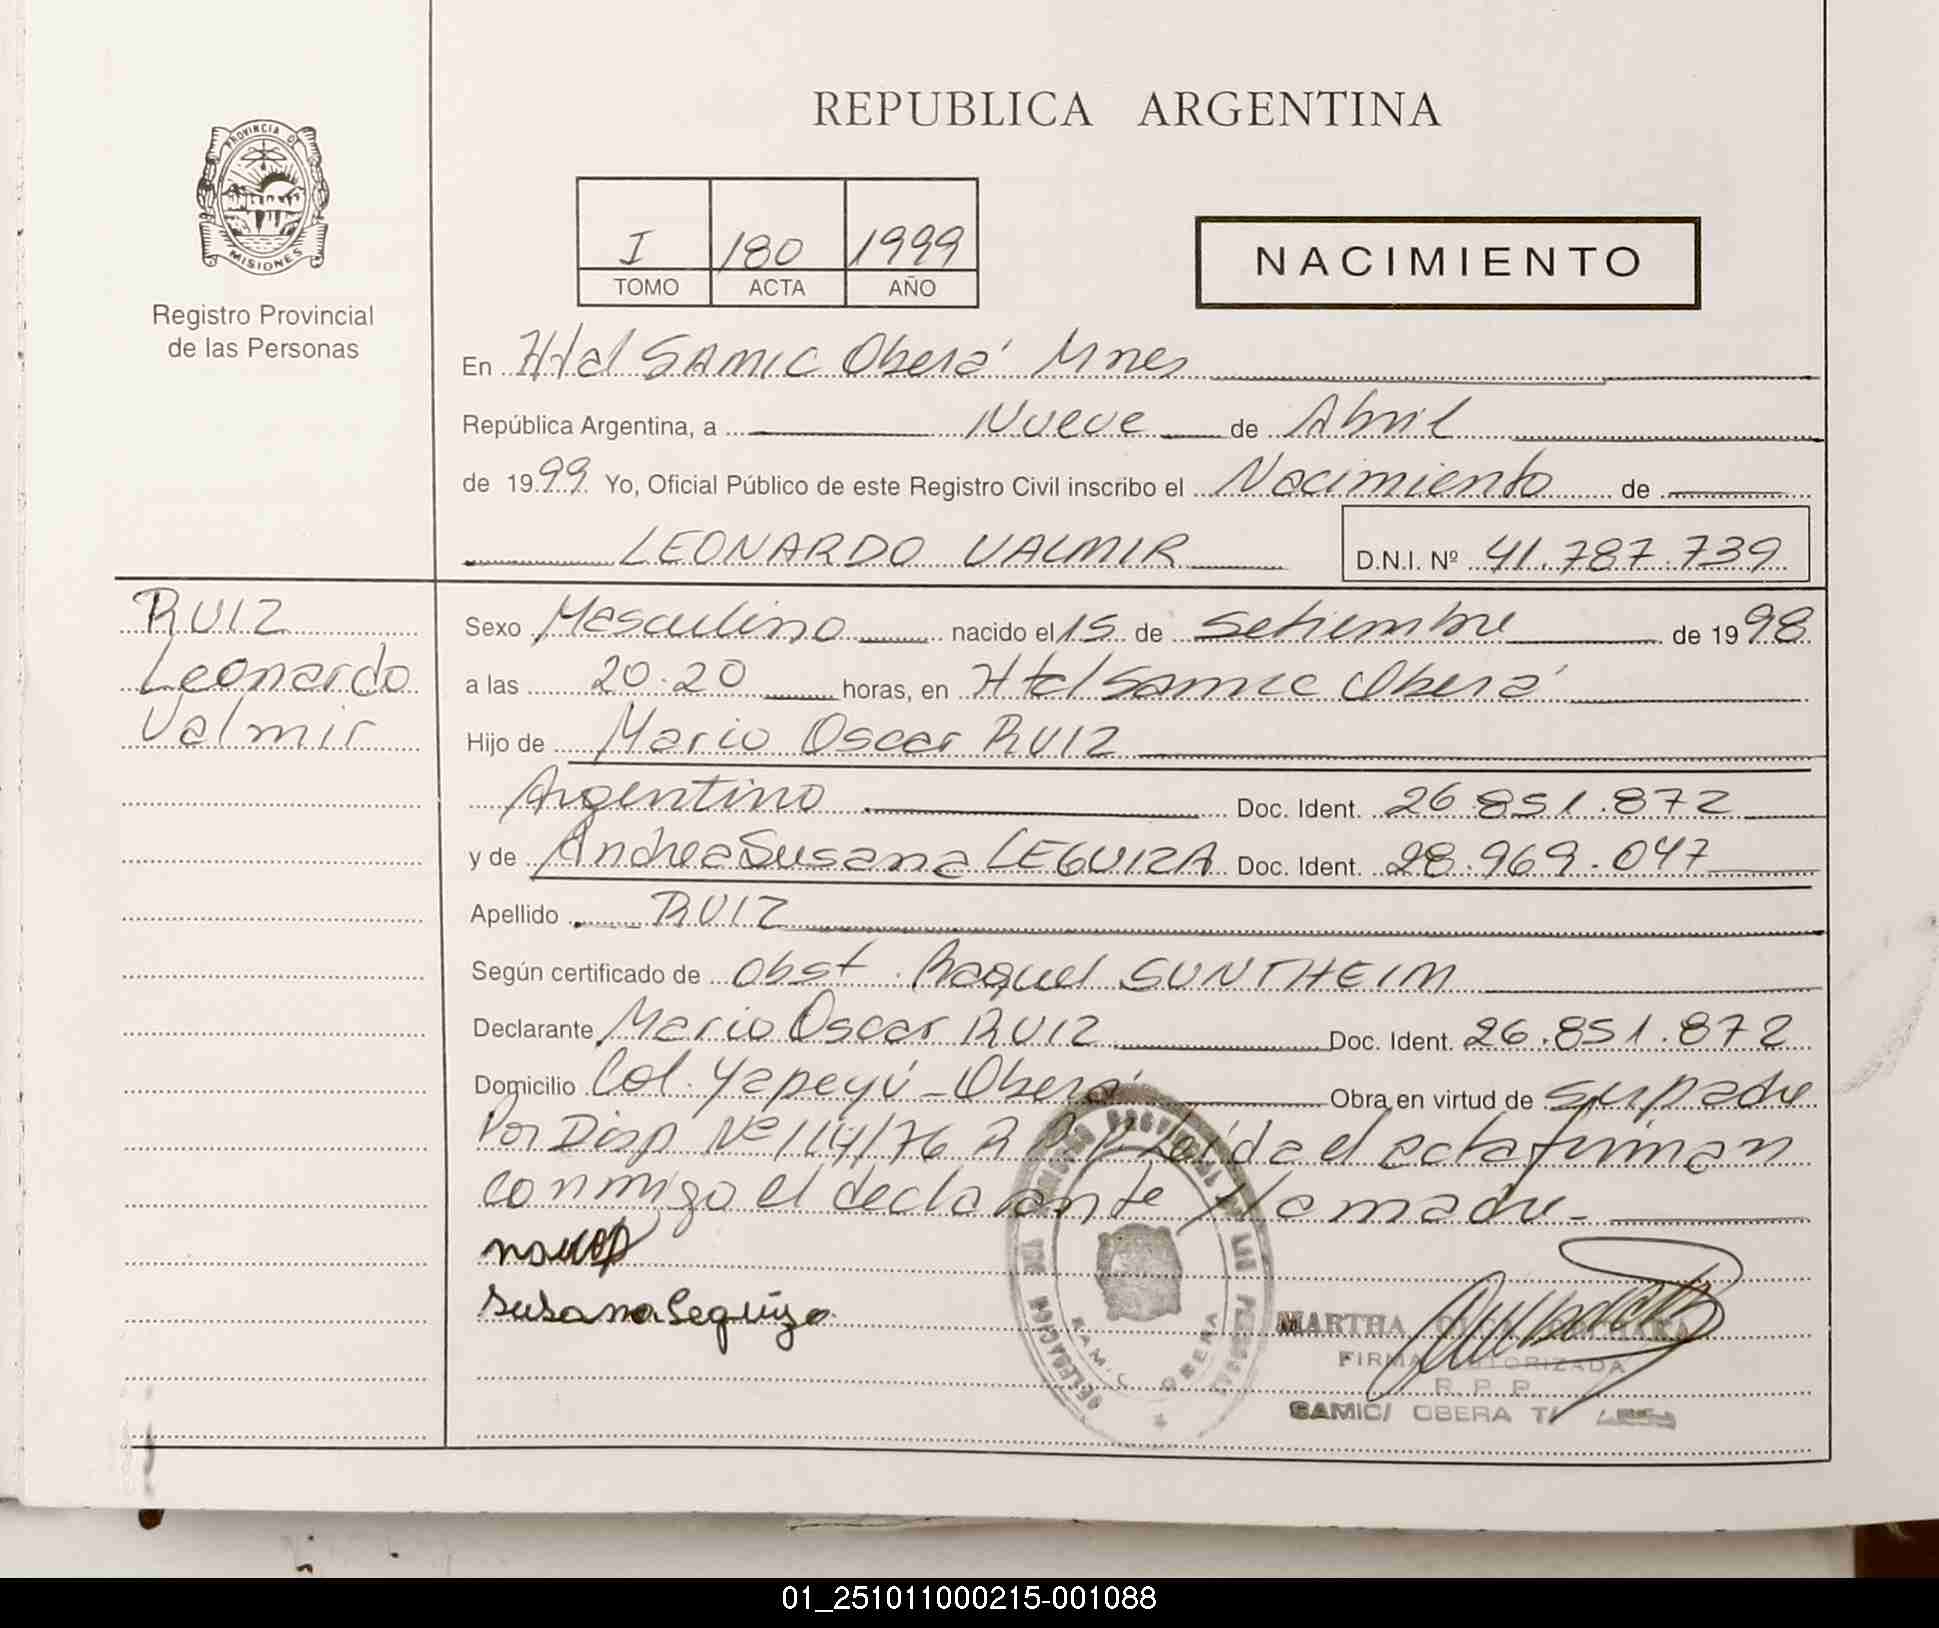 REPUBLICA ARGENTINA
PROVINCIA DE
MISIONES
Registro Provincial
de las Personas
I 180 1999
TOMO ACTA AÑO
NACIMIENTO
En Htal SAMIC Oberá Mnes
República Argentina, a Nueve de Abril
de 1999 Yo, Oficial Público de este Registro Civil inscribo el Nacimiento de
LEONARDO VALMIR D.N.I. Nº 41.787.739
RUIZ
Leonardo
Valmir
Sexo Masculino nacido el 15 de Setiembre de 1998
a las 20.20 horas, en Htal Samic Oberá
Hijo de Mario Oscar RUIZ
Argentino Doc. Ident. 26.851.872
y de Andrea Susana LEGUIZA Doc. Ident. 28.969.047
Apellido RUIZ
Según certificado de Obst. Raquel SUNTHEIM
Declarante Mario Oscar RUIZ Doc. Ident. 26.851.872
Domicilio Col. Yapeyú - Oberá Obra en virtud de su padre
Por Disp Nº 114/76 R.P.P. Leída el acta firman
conmigo el declarante y la madre -
Susana Leguiza
DELEGACION
SAMIC OBERA
MARTHA
FIRMA AUTORIZADA
R. P. P.
SAMIC/ OBERA
01_251011000215-001088